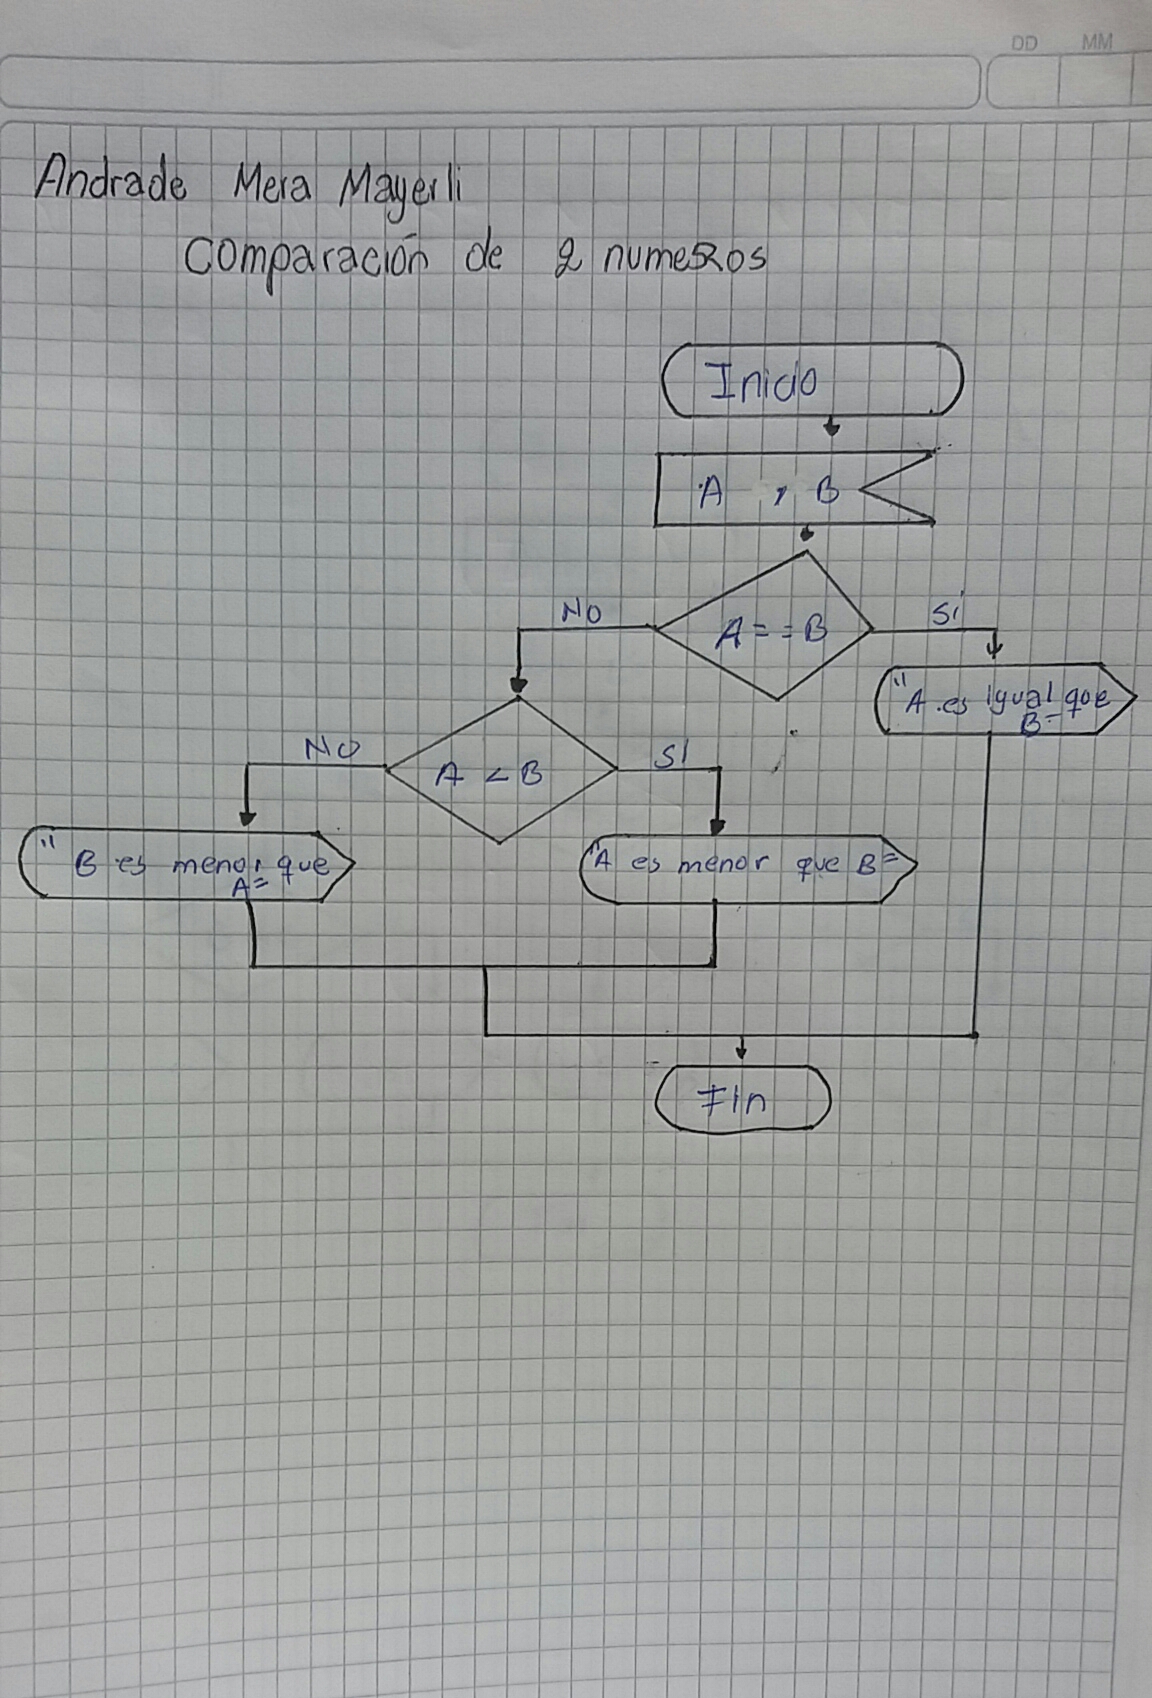 DD MM
Andrade Mera Mayerli
Comparación de 2 numeros
Inicio
A , B
No
A = = B
Sí
"A es igual que
B=
No
A < B
Sí
" B es menor que
A=
"A es menor que B=
Fin